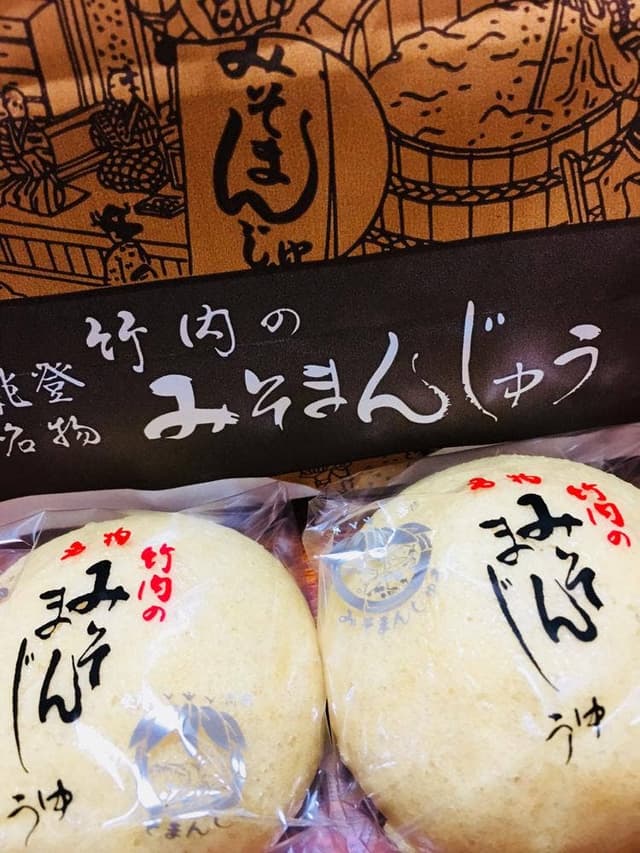 みそまんじゅ
竹内の
能登
名物
みそまんじゅう
名物
竹内の
みそ
まん
じゅう
みそまんじ
名物
竹内の
みそ
まん
じゅう
みそまんじゅう